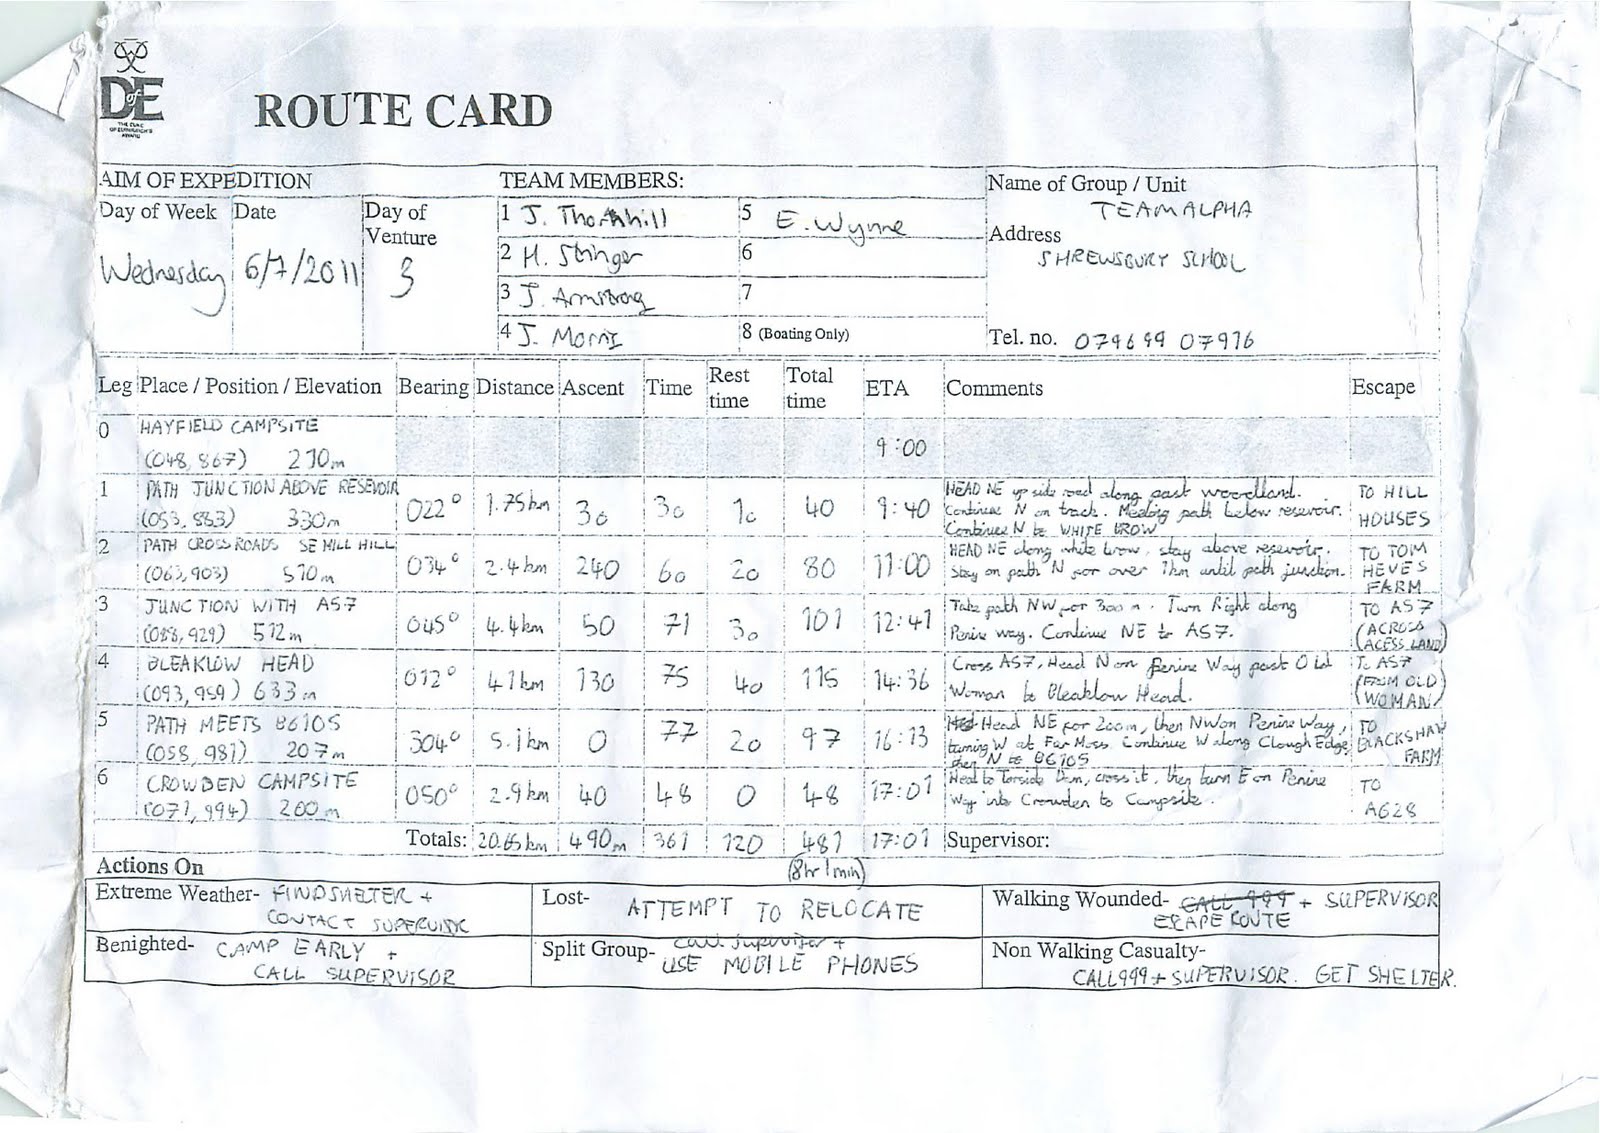 DofE
THE DUKE
OF EDINBURGH'S
AWARD
ROUTE CARD
AIM OF EXPEDITION
Day of Week Date Day of Venture
Wednesday 6/7/2011 3
TEAM MEMBERS:
1 J. Thornhill
2 H. Stringer
3 J. Armstrong
4 J. Morris
5 E. Wynne
6
7
8 (Boating Only)
Name of Group / Unit
TEAM ALPHA
Address
SHREWSBURY SCHOOL
Tel. no. 079699 07976
Leg Place / Position / Elevation Bearing Distance Ascent Time Rest time Total time ETA Comments Escape
0 HAYFIELD CAMPSITE
(048, 867) 210m 9:00
1 PATH JUNCTION ABOVE RESEVOIR
(053, 883) 330m 022° 1.75km 30 30 10 40 9:40
HEAD NE up side road along past woodland.
Continue N on track. Meeting path below reservoir.
Continue N to WHITE BROW
TO HILL
HOUSES
2 PATH CROSSROADS SE MILL HILL
(063, 903) 510m 034° 2.4km 240 60 20 80 11:00
HEAD NE along white brow, stay above reservoir.
Stay on path N for over 1km until path junction.
TO TOM
HEYES
FARM
3 JUNCTION WITH A57
(088, 929) 512m 045° 4.4km 50 71 30 101 12:41
Take path NW for 300m. Turn Right along
Penine way. Continue NE to A57.
TO A57
(ACROSS
ACESS LAND)
4 BLEAKLOW HEAD
(093, 959) 633m 012° 4.1km 130 75 40 115 14:36
Cross A57, Head N on Penine Way past Old
Woman to Bleaklow Head.
To A57
(FROM OLD
WOMAN)
5 PATH MEETS B6105
(058, 981) 207m 304° 5.1km 0 77 20 97 16:13
Head NE for 200m, then NW on Penine Way,
turning W at Far Moss. Continue W along Clough Edge,
then N to B6105
TO
BLACKSHAW
FARM
6 CROWDEN CAMPSITE
(071, 994) 200m 050° 2.9km 40 48 0 48 17:01
Head to Torside Dam, cross it, then turn E on Penine
Way into Crowden to Campsite.
TO
A628
Totals: 20.65km 490m 361 120 481 17:01 Supervisor:
(8hr 1min)
Actions On
Extreme Weather- FIND SHELTER +
CONTACT SUPERVISOR
Lost- ATTEMPT TO RELOCATE
Walking Wounded- CALL 999 + SUPERVISOR
ESCAPE ROUTE
Benighted- CAMP EARLY +
CALL SUPERVISOR
Split Group- Call Supervisor +
USE MOBILE PHONES
Non Walking Casualty-
CALL 999 + SUPERVISOR. GET SHELTER.